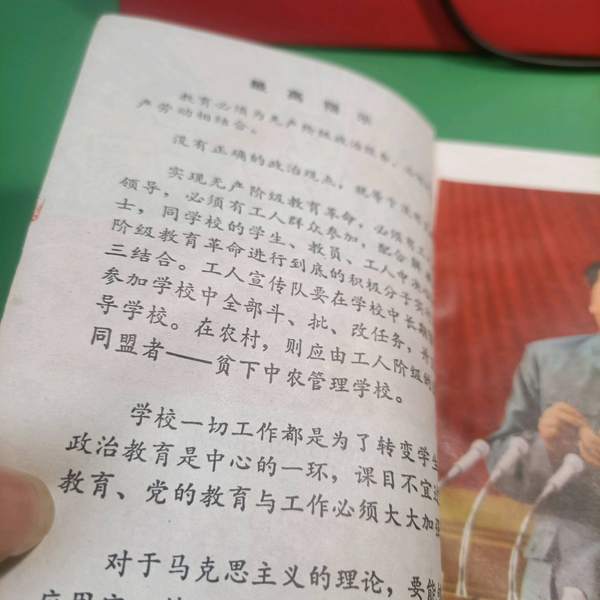 最高指示
教育必须为无产阶级政治服务,
产劳动相结合。
没有正确的政治观点,就等于没有
实现无产阶级教育革命,必须有工
领导,必须有工人群众参加,配合解
士,同学校的学生、教员、工人中
阶级教育革命进行到底的积极分子实
三结合。工人宣传队要在学校中长期
参加学校中全部斗、批、改任务,并
导学校。在农村,则应由工人阶级的
同盟者——贫下中农管理学校。
学校一切工作都是为了转变学生
政治教育是中心的一环,课目不宜
教育、党的教育与工作必须大大加强
对于马克思主义的理论,要能